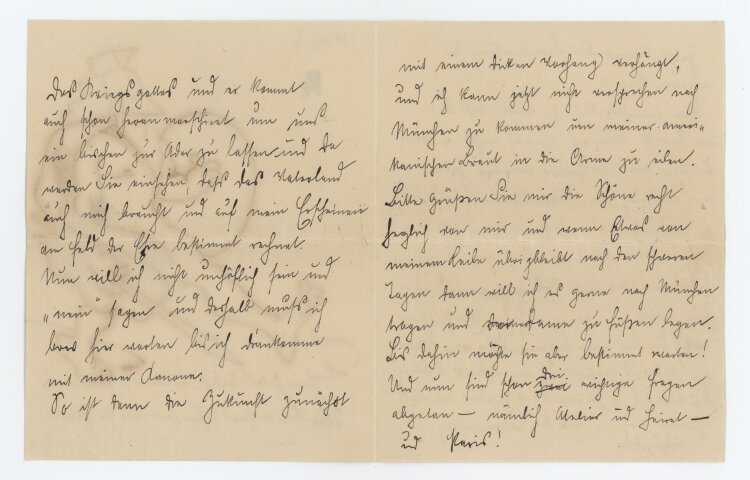 des Kriegsgottes und er kommt
auch schon heranmarschiert um uns
ein bischen zur Ader zu lassen und da
werden Sie einsehen, dass das Vaterland
auch mich braucht und auf mein Erscheinen
am Feld der Ehre bestimmt rechnet.
Nun will ich nicht unhöflich sein und
„nein“ sagen und deshalb muss ich
brav hier warten bis ich drankomme
mit meiner Kanone.
So ist denn die Zukunft zunächst
mit einem dicken Vorhang verhängt,
und ich kann jetzt nicht versprechen nach
München zu kommen um meiner ameri-
kanischen Braut in die Arme zu eilen.
Bitte grüßen Sie mir die Schöne recht
herzlich von mir und wenn Etwas von
meinem Leibe übrigbleibt nach den schweren
Tagen dann will ich es gerne nach München
tragen und Dame zu Füßen legen.
Bis dahin möchte sie aber bestimmt warten!
Und nun sind schon drei wichtige Fragen
abgetan — nämlich Atelier und Heirat —
und Paris!